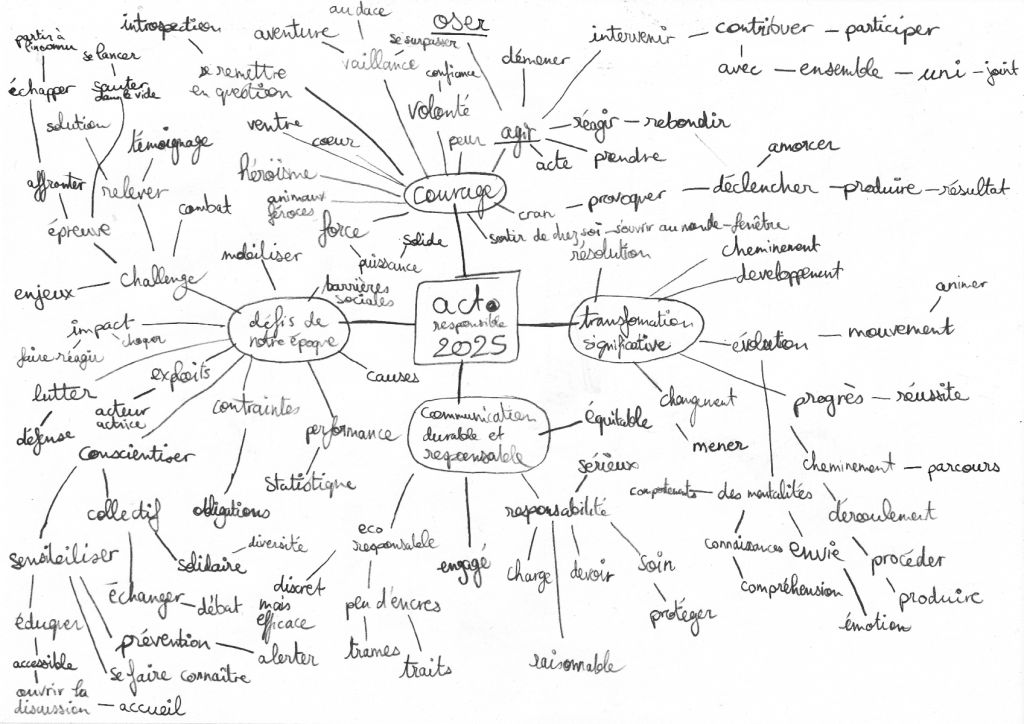 audace
introspection
oser
partir à
l'inconnu
se lancer
aventure
se surpasser
intervenir
contribuer
participer
échapper
sauter
dans le vide
se remettre
en question
vaillance
confiance
démener
avec
ensemble
uni
joint
solution
témoignage
ventre
coeur
volonté
peur
agir
réagir
rebondir
acte
prendre
amorcer
affronter
relever
héroïsme
animaux
féroces
courage
cran
provoquer
déclencher
produire
résultat
épreuve
combat
force
solide
sortir de chez soi
s'ouvrir au monde
fenêtre
résolution
cheminement
développement
challenge
mobiliser
puissance
barrières
sociales
enjeux
impact
choquer
faire réagir
défis de
notre époque
act.
responsible
2025
transfomation
significative
évolution
mouvement
animer
lutter
exploits
acteur
actrice
contraintes
causes
communication
durable et
responsable
équitable
changement
mener
progrès
réussite
défense
conscientiser
performance
statistique
sérieux
cheminement
parcours
collectif
obligations
responsabilité
comportements
des mentalités
déroulement
sensibiliser
diversité
solidaire
eco
responsable
engagé
charge
devoir
soin
connaissances
envie
procéder
échanger
débat
discret
mais
efficace
peu d'encres
protéger
compréhension
produire
éduquer
prévention
alerter
trames
traits
raisonnable
émotion
accessible
se faire connaître
ouvrir la
discussion
accueil